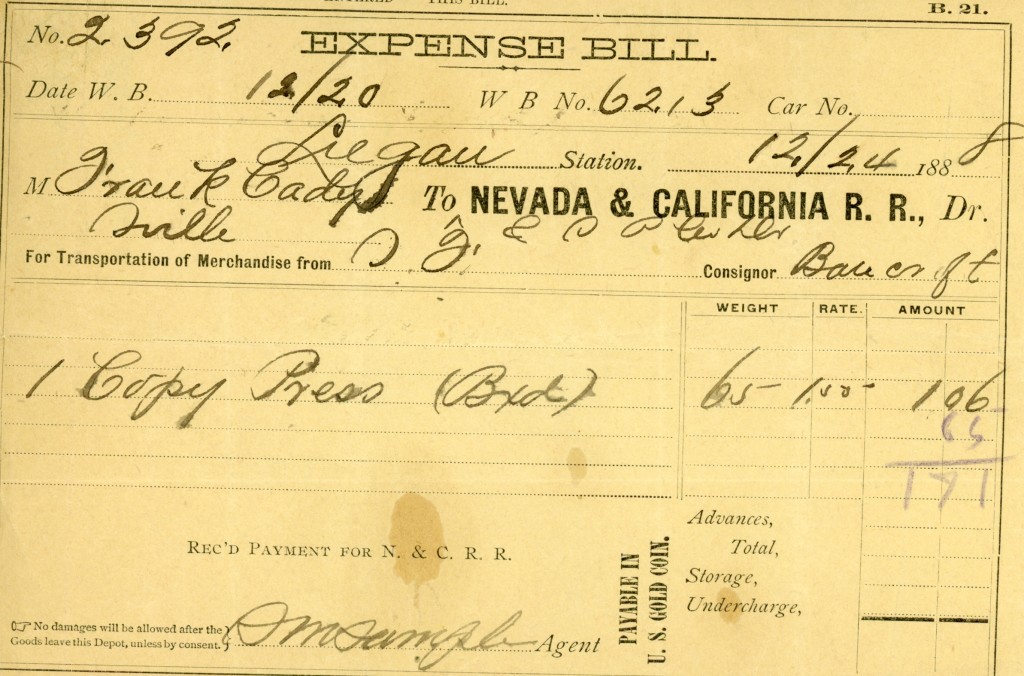 THIS BILL.
B. 21.
No. 2392.
EXPENSE BILL.
Date W. B. 12/20 W B No. 6213 Car No.
Liegan Station. 12/24 1888
M Frank Cady To NEVADA & CALIFORNIA R. R., Dr.
ville
For Transportation of Merchandise from S F Consignor Bancroft
WEIGHT RATE. AMOUNT
1 Copy Press (Bxd) 65 1.50 1 06
65
1 71
Advances,
Total,
Storage,
Undercharge,
REC'D PAYMENT FOR N. & C. R. R.
PAYABLE IN
U. S. GOLD COIN.
☞ No damages will be allowed after the
Goods leave this Depot, unless by consent.
Agent